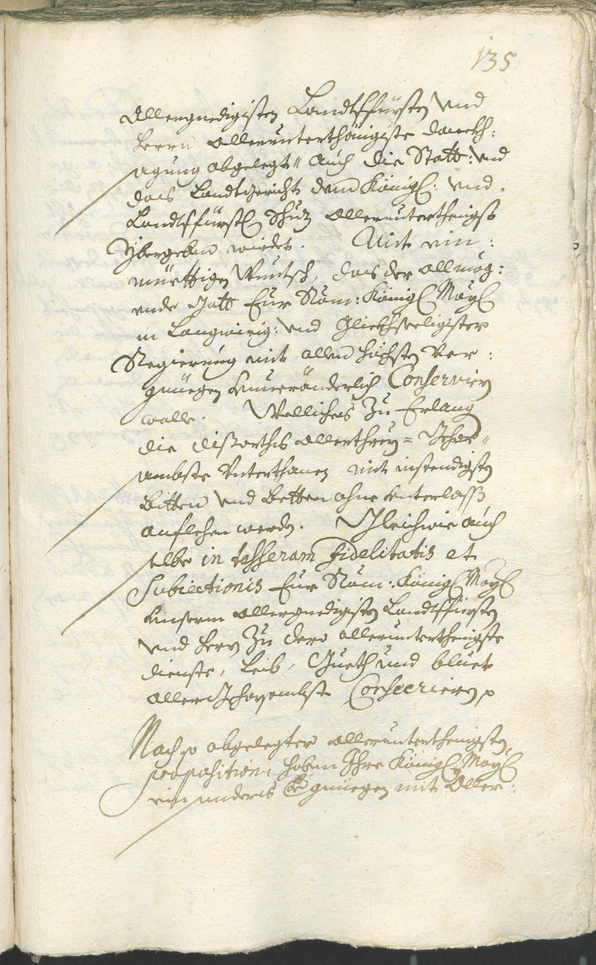 135
Allergnedigisten Landtsfürsten vnd
Herrn allerunterthönigiste danckh:
sagung abgelegt" auch die Statt: vnd
das Landtgericht dem Königl: vnd
Landtsfürstl Schuz allerunterthenigst
ybergeben würdet. Mit ein:
müettigen Wuntsch, das der allmög:
ende Gott Eur Röm: Königl May:
in Langwirig: vnd Glickhseeligister
Regierung mit allen höchsten Ver:
gnüegen Unveränderlich Conserviern
wolle. Welliches Zu Erlang
die disorthß allertreu= Gehor"
sambste Unterthanen mit instendigstn
Bitten vnd Betten ohne Unterlaß
anflehen werden. Gleichwie auch
selbe in tesseram fidelitatis et
Subiectionis Eur Röm: Königl May:
Unserm allergnedigistn Landtsfürsten
vnd Herrn Zu dero allerunterthenigste
dienste, Leib, Gueth und bluet
aller Gehorsambst Consecriern p
Nach so abgelegter allerunterthenigsten
proposition, haben Ihre Königl May:
ein sonderes Vergnüegen mit Aller: